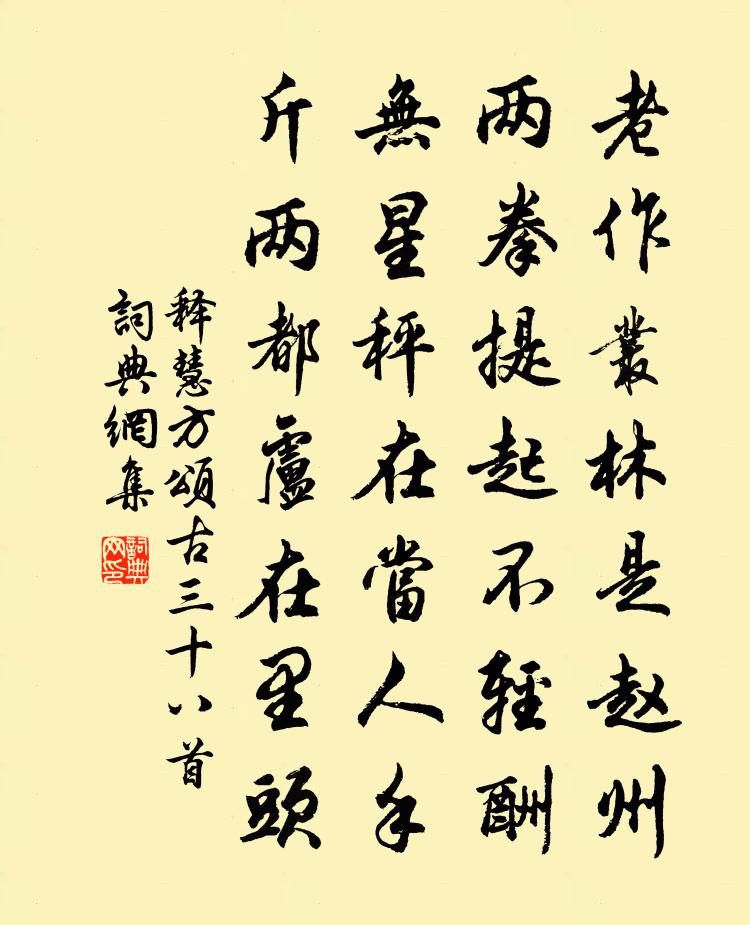 老作叢林是赵州
两拳提起不輕酬
無星秤在當人手
斤两都盧在里頭
释慧方頌古三十八首
詞典網集
詞典网印